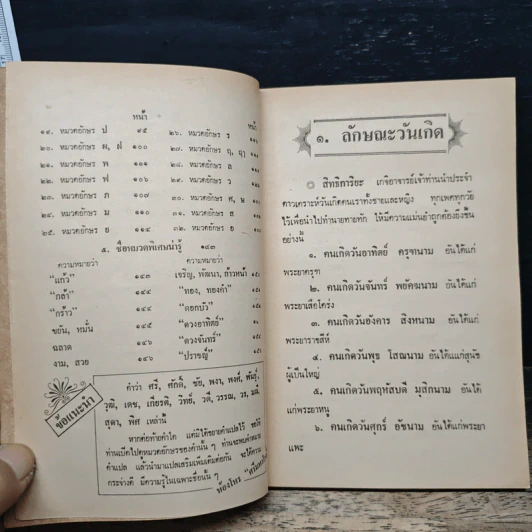 หน้า
หน้า
๑๙. หมวดอักษร ป ๙๕
๒๐. หมวดอักษร ผ, ฝ ๑๐๐
๒๑. หมวดอักษร พ ๑๐๑
๒๒. หมวดอักษร ฟ ๑๐๖
๒๓. หมวดอักษร ภ ๑๐๗
๒๔. หมวดอักษร ม ๑๑๐
๒๕. หมวดอักษร ย
๒๖. หมวดอักษร ร
๒๗. หมวดอักษร ฤ, ฤๅ
๒๘. หมวดอักษร ล
๒๙. หมวดอักษร ว
๓๐. หมวดอักษร ศ, ษ
๓๑. หมวดอักษร ส
๓๒. หมวดอักษร อ
๕. ชื่อหมวดพิเศษน่ารู้ ๑๔๓
ความหมายว่า
"แก้ว" ๑๔๔
"กล้า" ๑๔๔
"กร้าว" ๑๔๔
ขยัน, หมั่น
ฉลาด
งาม, สวย ๑๔๖
ความหมายว่า
เจริญ, พัฒนา, ก้าวหน้า
"ทอง, ทองคำ"
"ดอกบัว"
"ดวงอาทิตย์"
"ดวงจันทร์"
"ปราชญ์"
ข้อแนะนำ
คำว่า ศรี, ศักดิ์, ชัย, พงา, พงศ์, พันธุ์,
วุฒิ, เดช, เกียรติ, วิทย์, วดี, วรรณ, วร, มณี,
สุดา, พิศ เหล่านี้
หากต่อท้ายคำใด แต่มิได้ขยายคำแปลไว้ ขอให้
ท่านเปิดไปดูหมวดอักษรของคำนั้น ๆ ท่านจะพบคำตาม
คำแปล แล้วนำมาแปลเสริมเพิ่มเติมต่อกัน จะได้ความ
กระจ่างดี มีความรู้ในเฉพาะชื่อนั้น ๆ
๑. ลักษณะวันเกิด
สิทธิการิยะ เกจิอาจารย์เจ้าท่านนำประจำ
ดาวเคราะห์วันเกิดคนเราทั้งชายและหญิง ทุกเพศทุกวัย
ไว้เพื่อนำไปทำนายทายทัก ให้มีความแม่นยำถูกต้องยิ่งขึ้น
อย่างนี้
๑. คนเกิดวันอาทิตย์ ครุฑนาม อันได้แก่
พระยาครุฑ
๒. คนเกิดวันจันทร์ พยัคฆนาม อันได้แก่
พระยาเสือโคร่ง
๓. คนเกิดวันอังคาร สิงหนาม อันได้แก่
พระยาราชสีห์
๔. คนเกิดวันพุธ โสณนาม อันได้แก่สุนัข
ผู้เป็นใหญ่
๕. คนเกิดวันพฤหัสบดี มุสิกนาม อันได้
แก่พระยาหนู
๖. คนเกิดวันศุกร์ อัชนาม อันได้แก่พระยา
แพะ